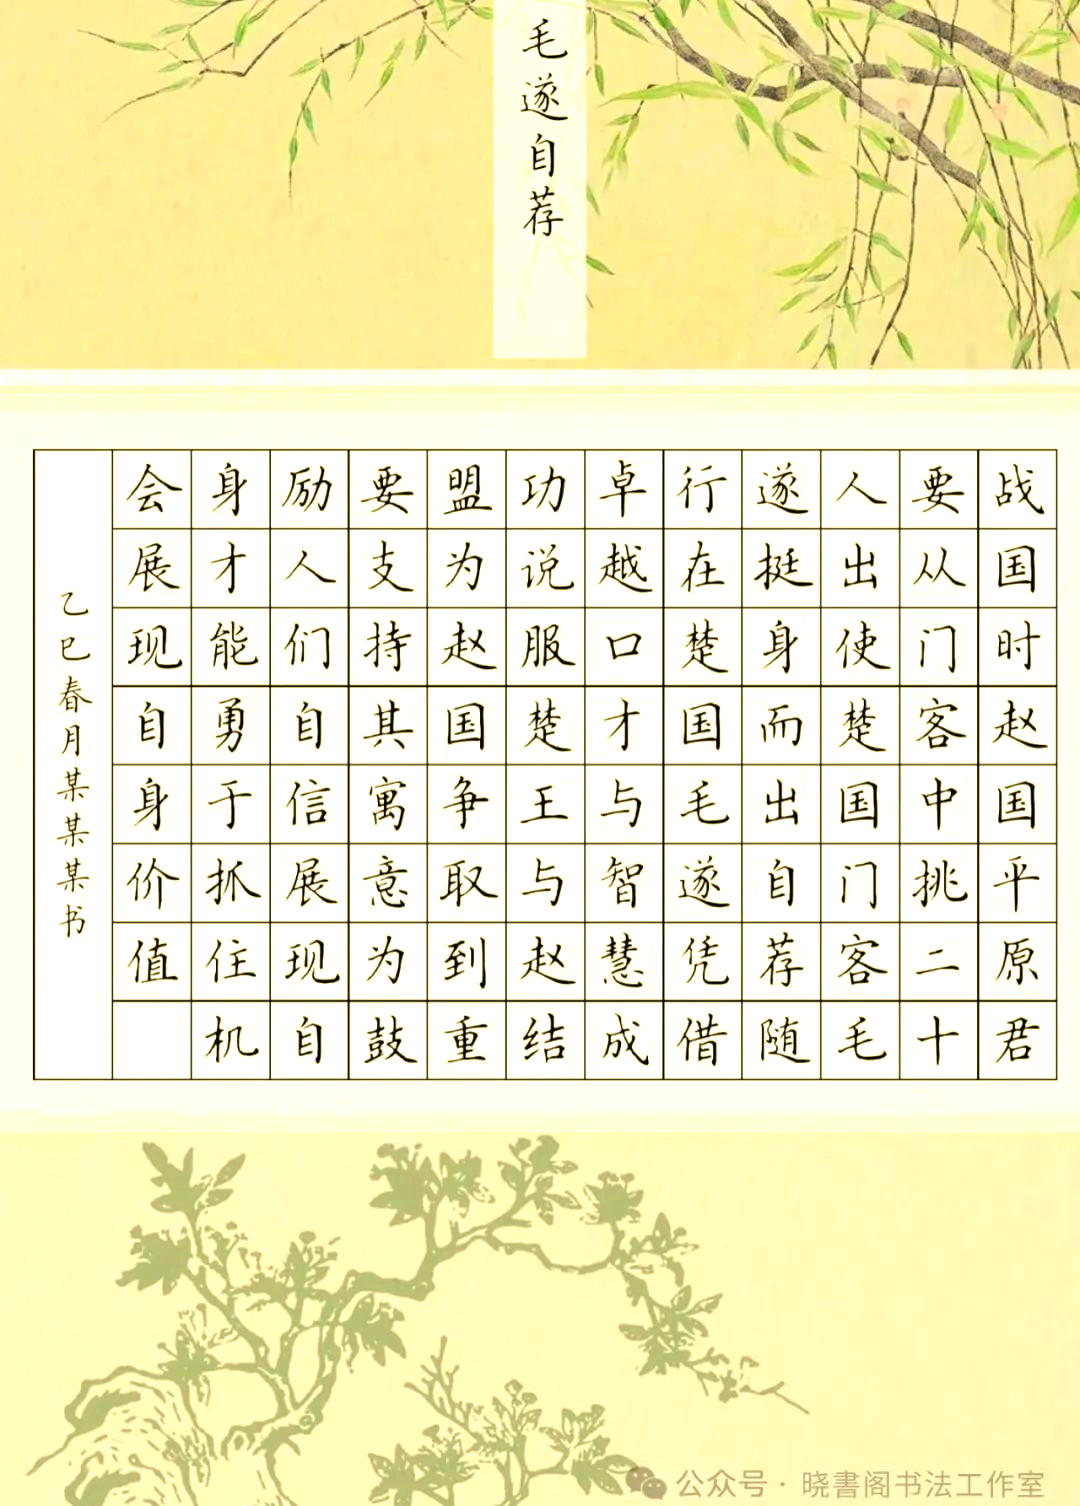 毛遂自荐
战国时赵国平原君
要从门客中挑二十
人出使楚国门客毛
遂挺身而出自荐随
行在楚国毛遂凭借
卓越口才与智慧成
功说服楚王与赵结
盟为赵国争取到重
要支持其寓意为鼓
励人们自信展现自
身才能勇于抓住机
会展现自身价值
乙巳春月某某某书
公众号·晓書阁书法工作室